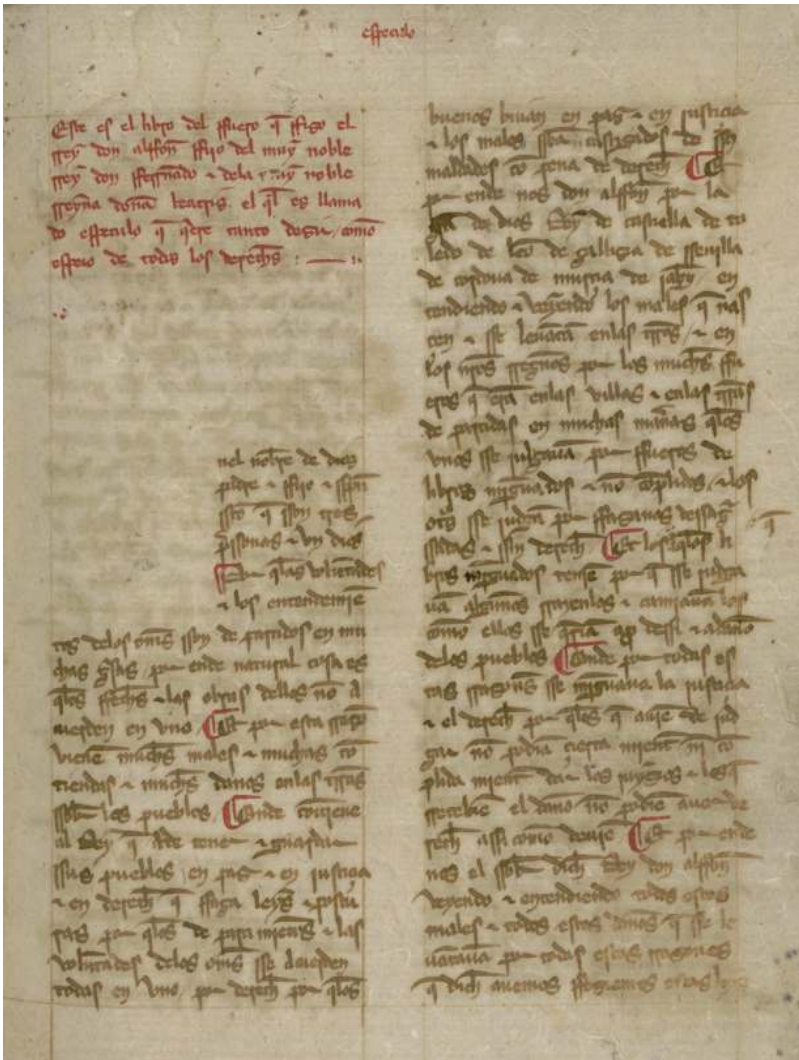 especulo
Este es el libro del ffuero q̄ ffizo el
rrey don alffon̄ ffijo del muy noble
rrey don fferrnado ⁊ dela muy noble
rreyna doña beatris. el q̄l es llama
do especulo q̄ q̄ere tanto dezir como
espeio de todos los derechos
nel nōbre de dios
padre ⁊ ffijo ⁊ sp̄u
ssc̄o q̄ sson tres
perssonas ⁊ vn dios
Por q̄ las voluntades
⁊ los entendemiē
tos delos om̄s sson de partidos en mu
chas guisas por ende natural cosa es
q̄los ffechs ⁊ las obras dellos nō a
cuerden en vno. Et por esta rrazō
vienē muchs males ⁊ muchas cō
tiendas ⁊ muchs danos enlas trr̄as
ssobre los pueblos. Onde conuiene
al Rey q̄ a de tener ⁊ guardar
ssus pueblos en paz ⁊ en justicia
⁊ en derech̄ q̄ ffaga leyes ⁊ postu
ras por q̄los de partimientos ⁊ las
voluntades delos om̄s sse acuerden
todas en vno por derech̄ por q̄los
buenos biuan en paz ⁊ en justicia
⁊ los malos ssean castigados de ssus
maldades cō pena de derech̄ Et
por ende nos don alffon̄ por la
gr̄a de dios Rey de castiella de to
ledo de leō de gallizia de sseuilla
de cordoua de murçia de jahen en
tendiendo ⁊ veyendo los males q̄ nas
cen ⁊ sse leuātā enlas trr̄as ⁊ en
los nr̄os rregnos por los muchs ffu
eros q̄ erā enlas villas ⁊ enlas trr̄as
de partidas en muchas man̄as q̄los
vnos sse julgauā por ffueros de
libros minguados ⁊ nō cōplidos ⁊ los
ot̄s sse judgā por ffazanas dessaḡ
ssadas ⁊ ssin derech̄ Et los q̄los li
bros minguados teniē por q̄ sse judga
uā algunos rrayenlos ⁊ camiauālos
como ellos sse q̄riā a p̄ dessi ⁊ a dano
delos pueblos Onde por todas es
tas rrazon̄s sse minguaua la justicia
⁊ el derech̄ por q̄los q̄ auiē de jud
gar nō podiā çierta mient̄ ni cō
plida mient̄ dar los juyzios ⁊ los q̄
rreçebiē el dano nō podiē auer de
rech̄ assi como deuiē Et por ende
nos el ssobre dich̄ Rey don alffon̄
veyendo ⁊ entendiendo todos estos
males ⁊ todos estos danos q̄ sse le
uātauā por todas estas rrazones
q̄ dich̄ auemos ffeziemos estas leys